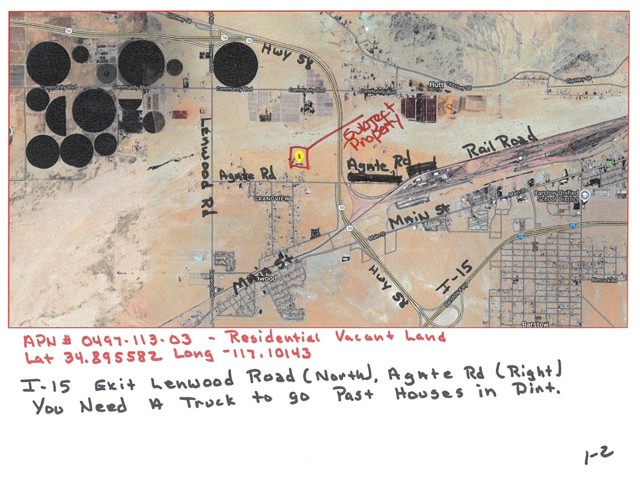 Hwy 58
Community Blvd
Community Blvd
Community Blvd
Hutt
Subject
Property
Lenwood Rd
Rail Road
Agate Rd
Agate Rd
GRANDVIEW
Main St
Barstow Unified
School District
Main St
Lenwood
Hwy 58
I-15
Barstow
APN # 0497-113-03 - Residential Vacant Land
Lat 34.895582 Long -117.10143
I-15 Exit Lenwood Road (North), Agate Rd (Right)
You Need A Truck to go Past Houses in Dirt.
1-2